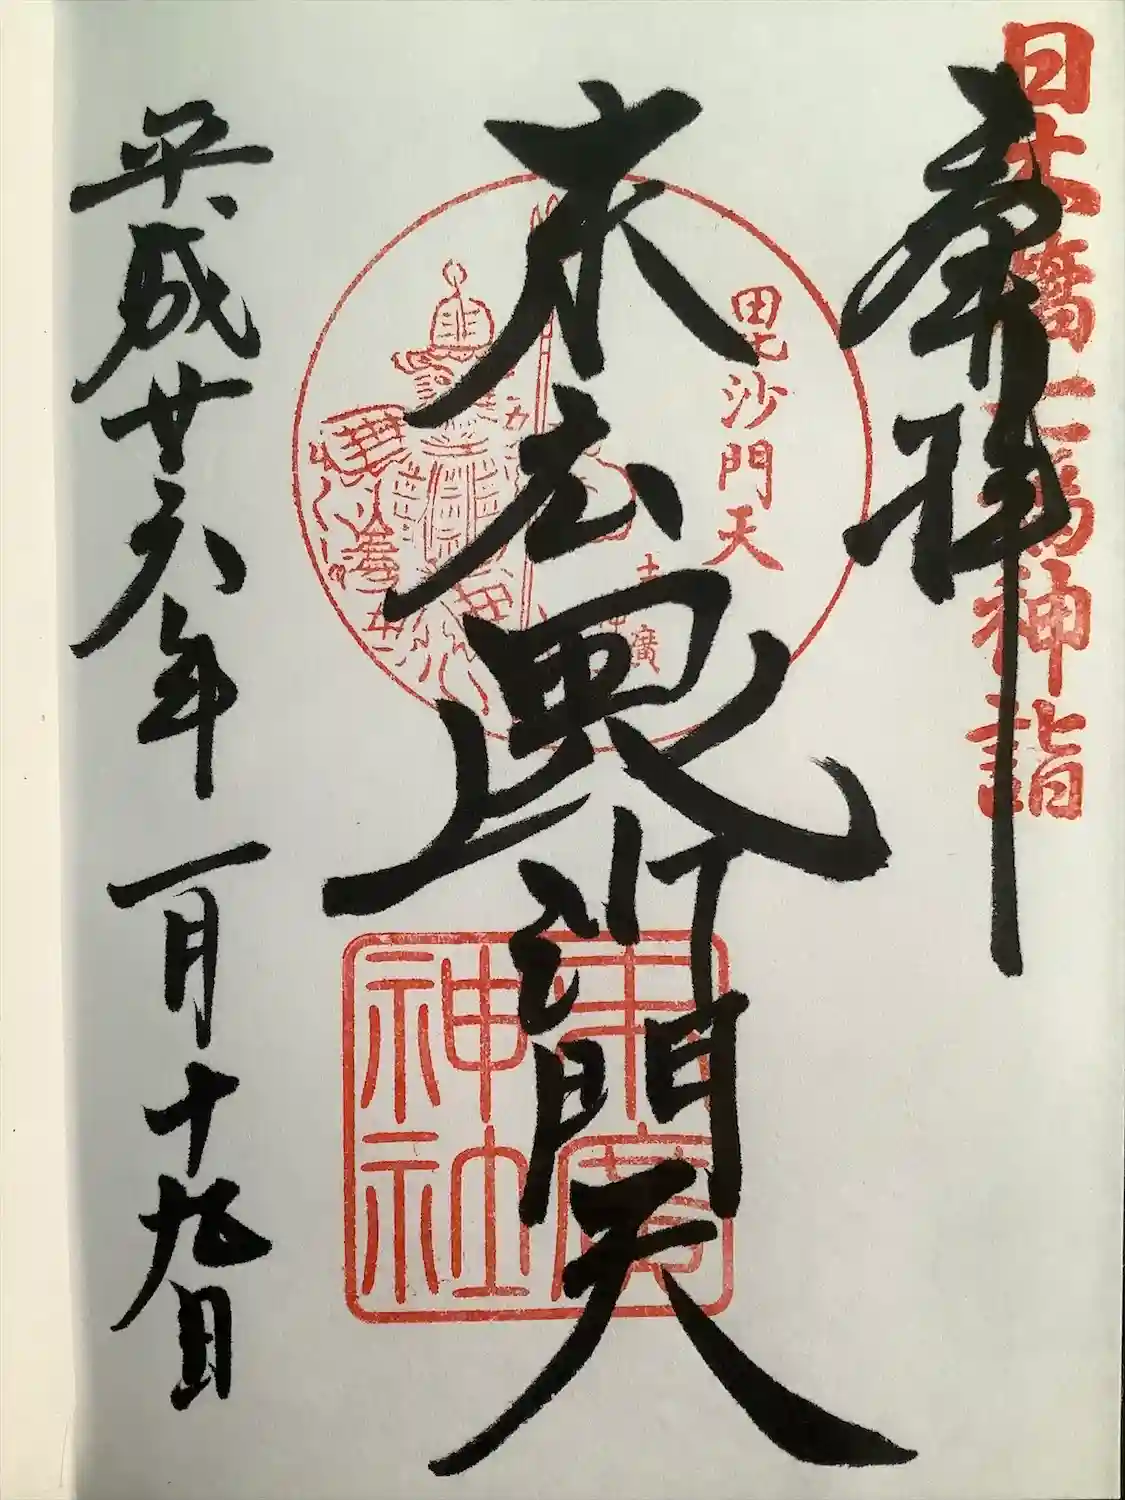 日本橋七福神詣
奉拝
末広毘沙門天
毘沙門天
末廣神社
平成廿六年一月十九日